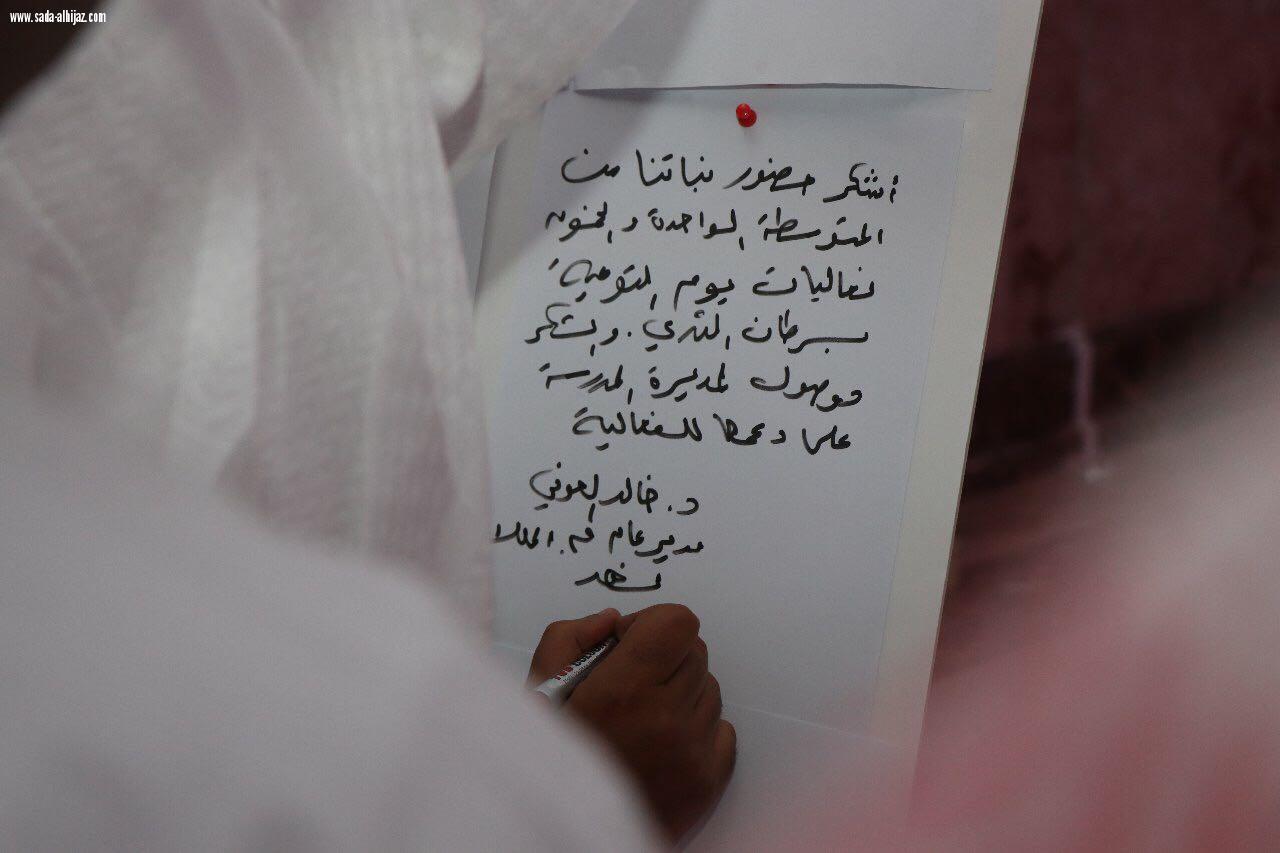 www.sada-alhijaz.com
أشكر حضور بناتنا من
المتوسطة الواحدة و الخمسون
فعاليات يوم التوعية
بسرطان الثدي. والشكر
موصول لمديرة المدرسة
على دعمها للفعالية
د. خالد العوفي
مدير عام م. الملك
فهد